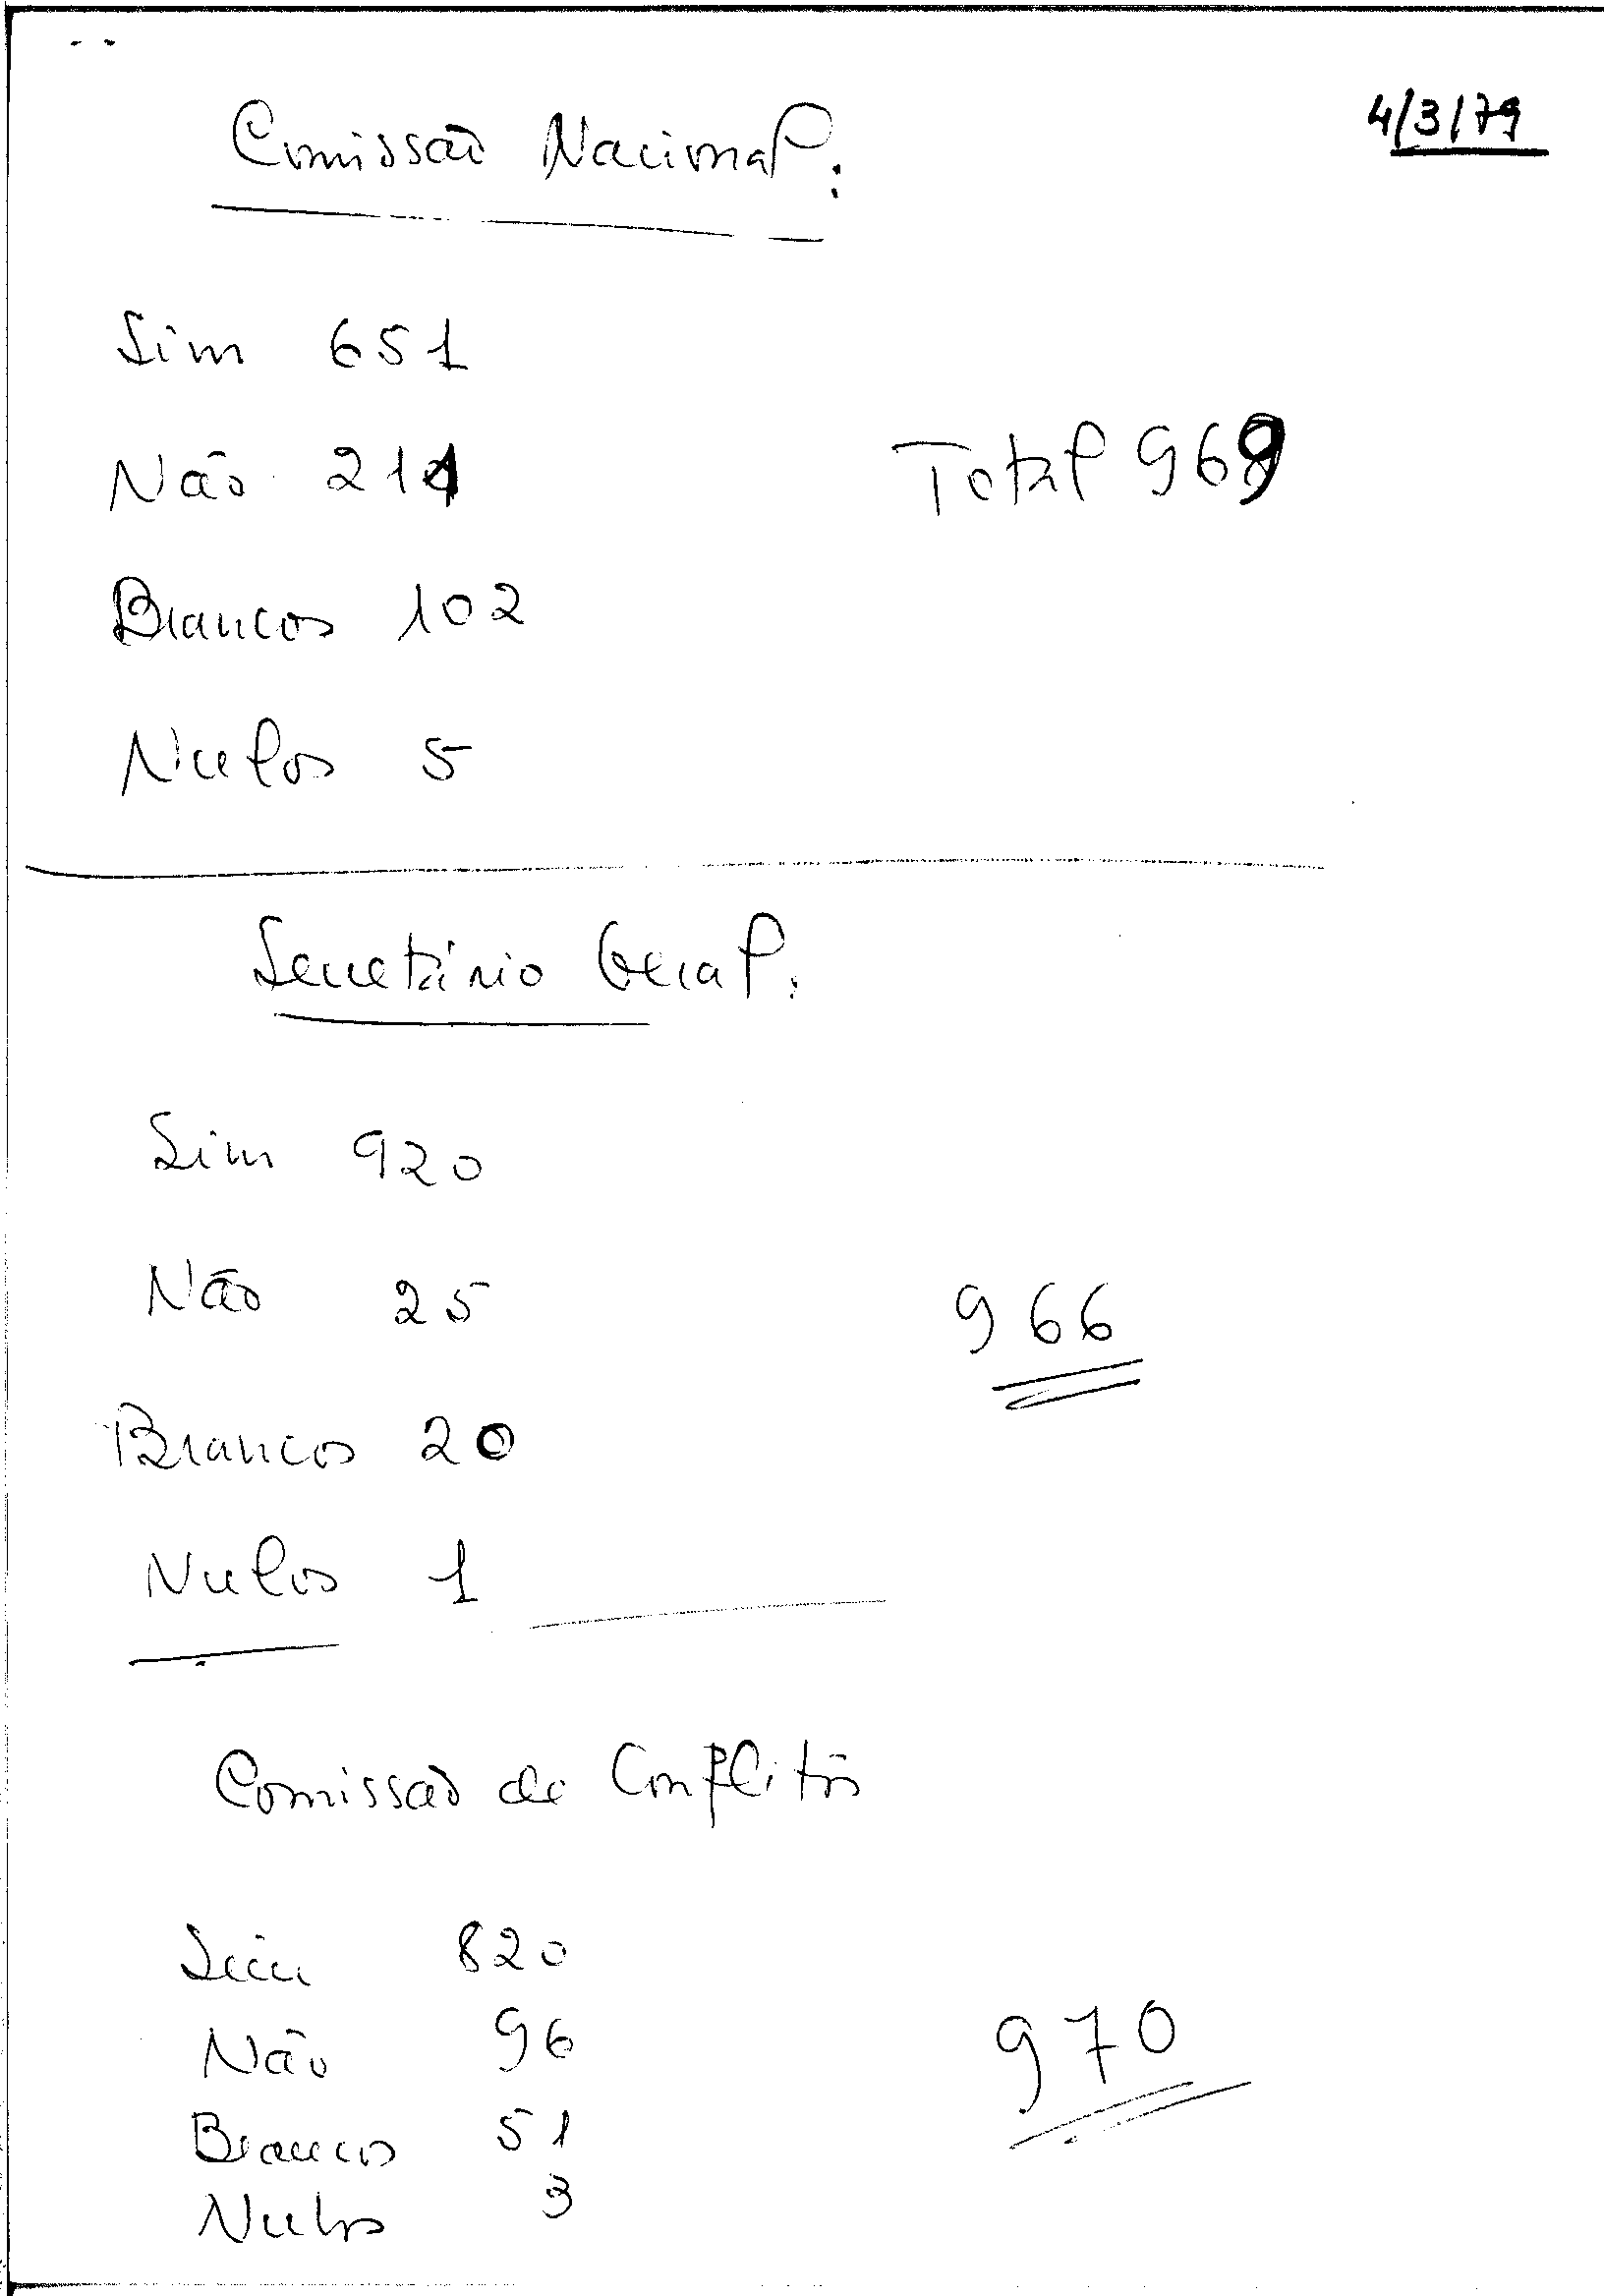 4/3/79
Comissão Nacional:
Sim 651
Não 211
Total 969
Brancos 102
Nulos 5
Secretário Geral:
Sim 920
Não 25
966
Brancos 20
Nulos 1
Comissão de Conflitos
Sim 820
Não 96
970
Brancos 51
Nulos 3